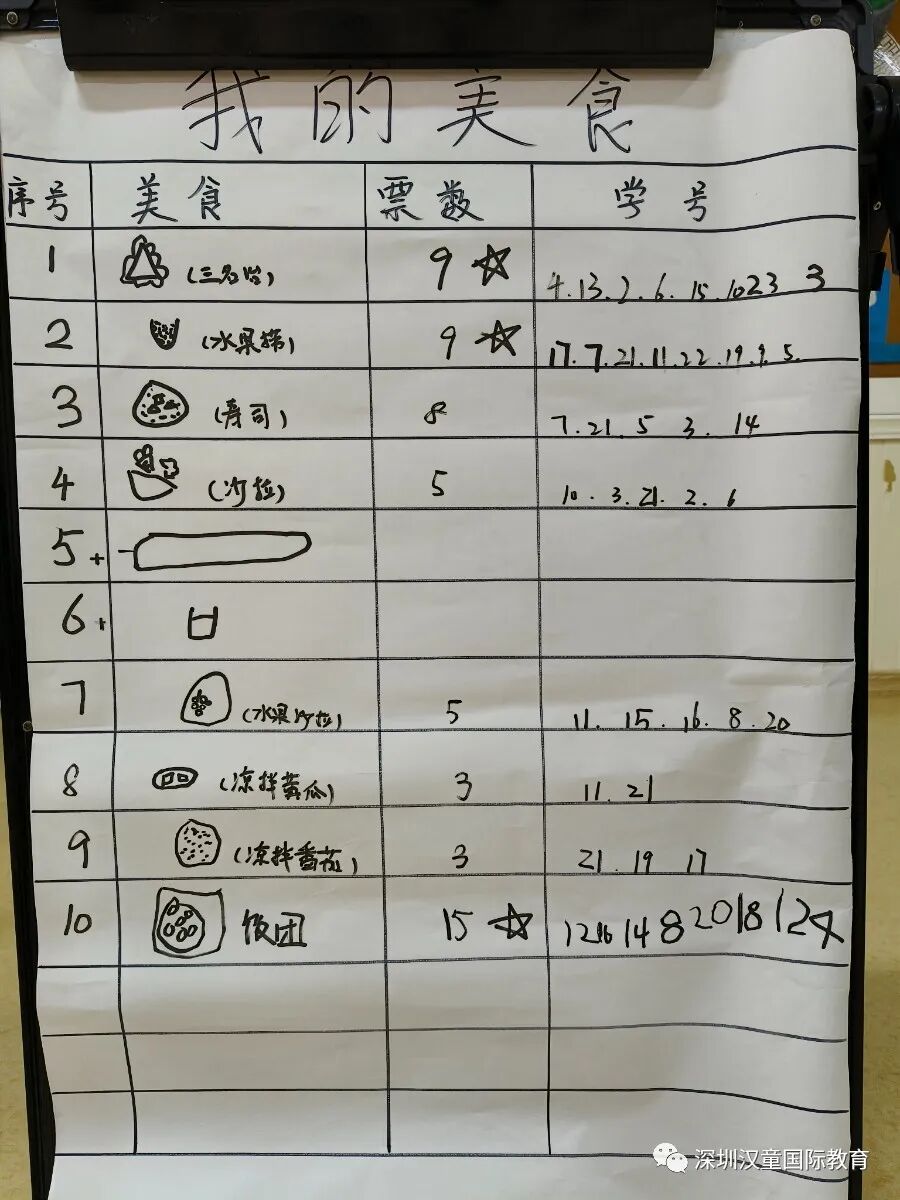 我的美食
序号 美食 票数 学号
1 (三名治) 9 4.13.2.6.15.1023 3
2 (水果捞) 9 17.7.21.11.22.19.9.5.
3 (寿司) 8 7.21.5 3.14
4 (沙拉) 5 10.3.21.2.6
5+
6+
7 (水果沙拉) 5 11.15.16.8.20
8 (凉拌黄瓜) 3 11.21
9 (凉拌番茄) 3 21.19 17
10 饭团 15 14 8 20 18
深圳汉童国际教育